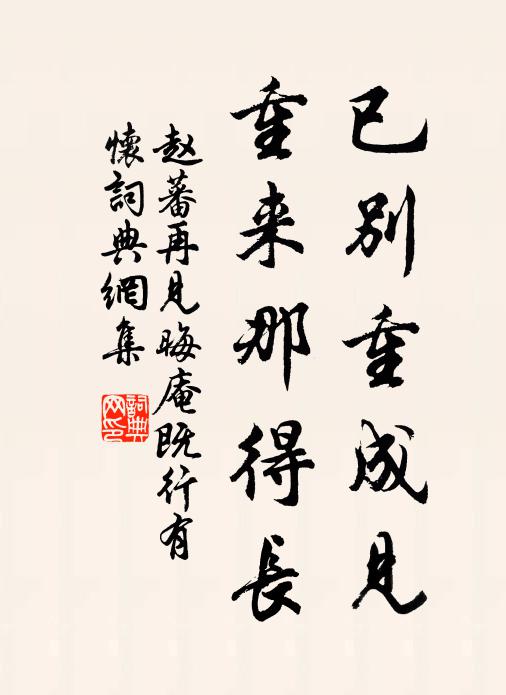 已别重成見
重来那得長
赵蕃再見晦庵既行有
懷詞典網集
詞典
网印